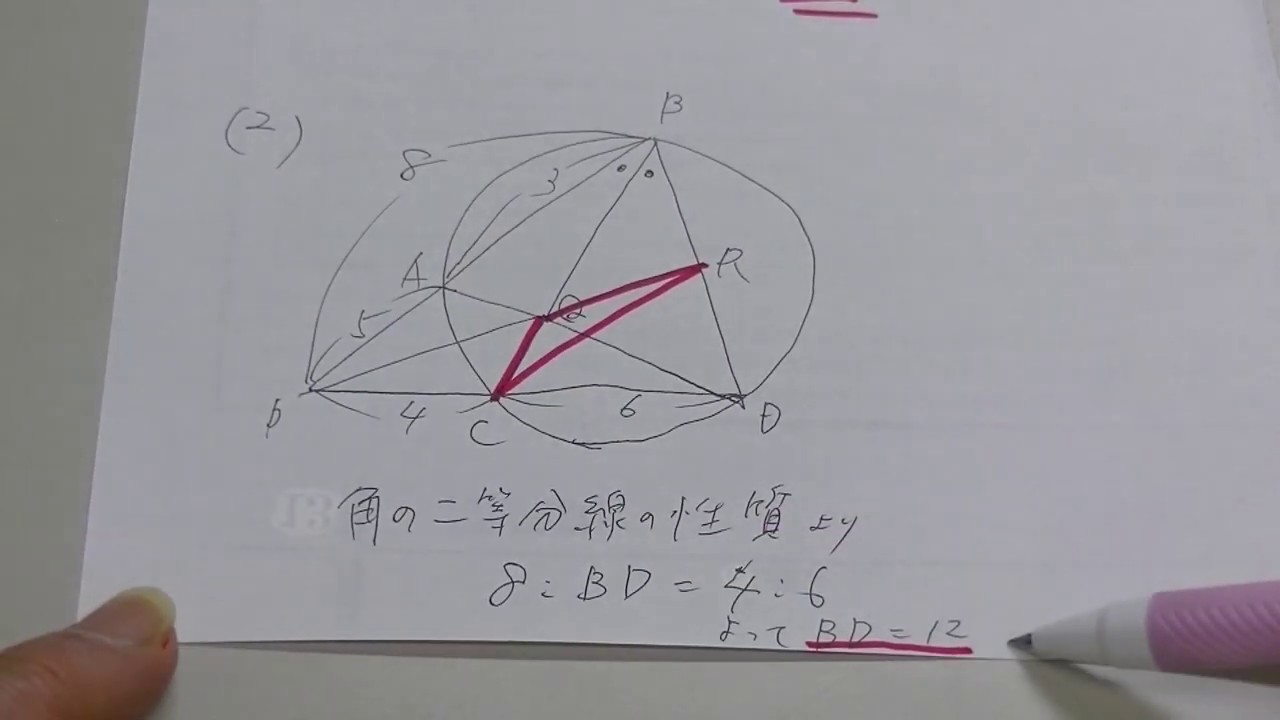 (2)
B
8
3
A
R
5
Q
P
4
C
6
D
角の二等分線の性質より
8:BD=4:6
よって BD=12